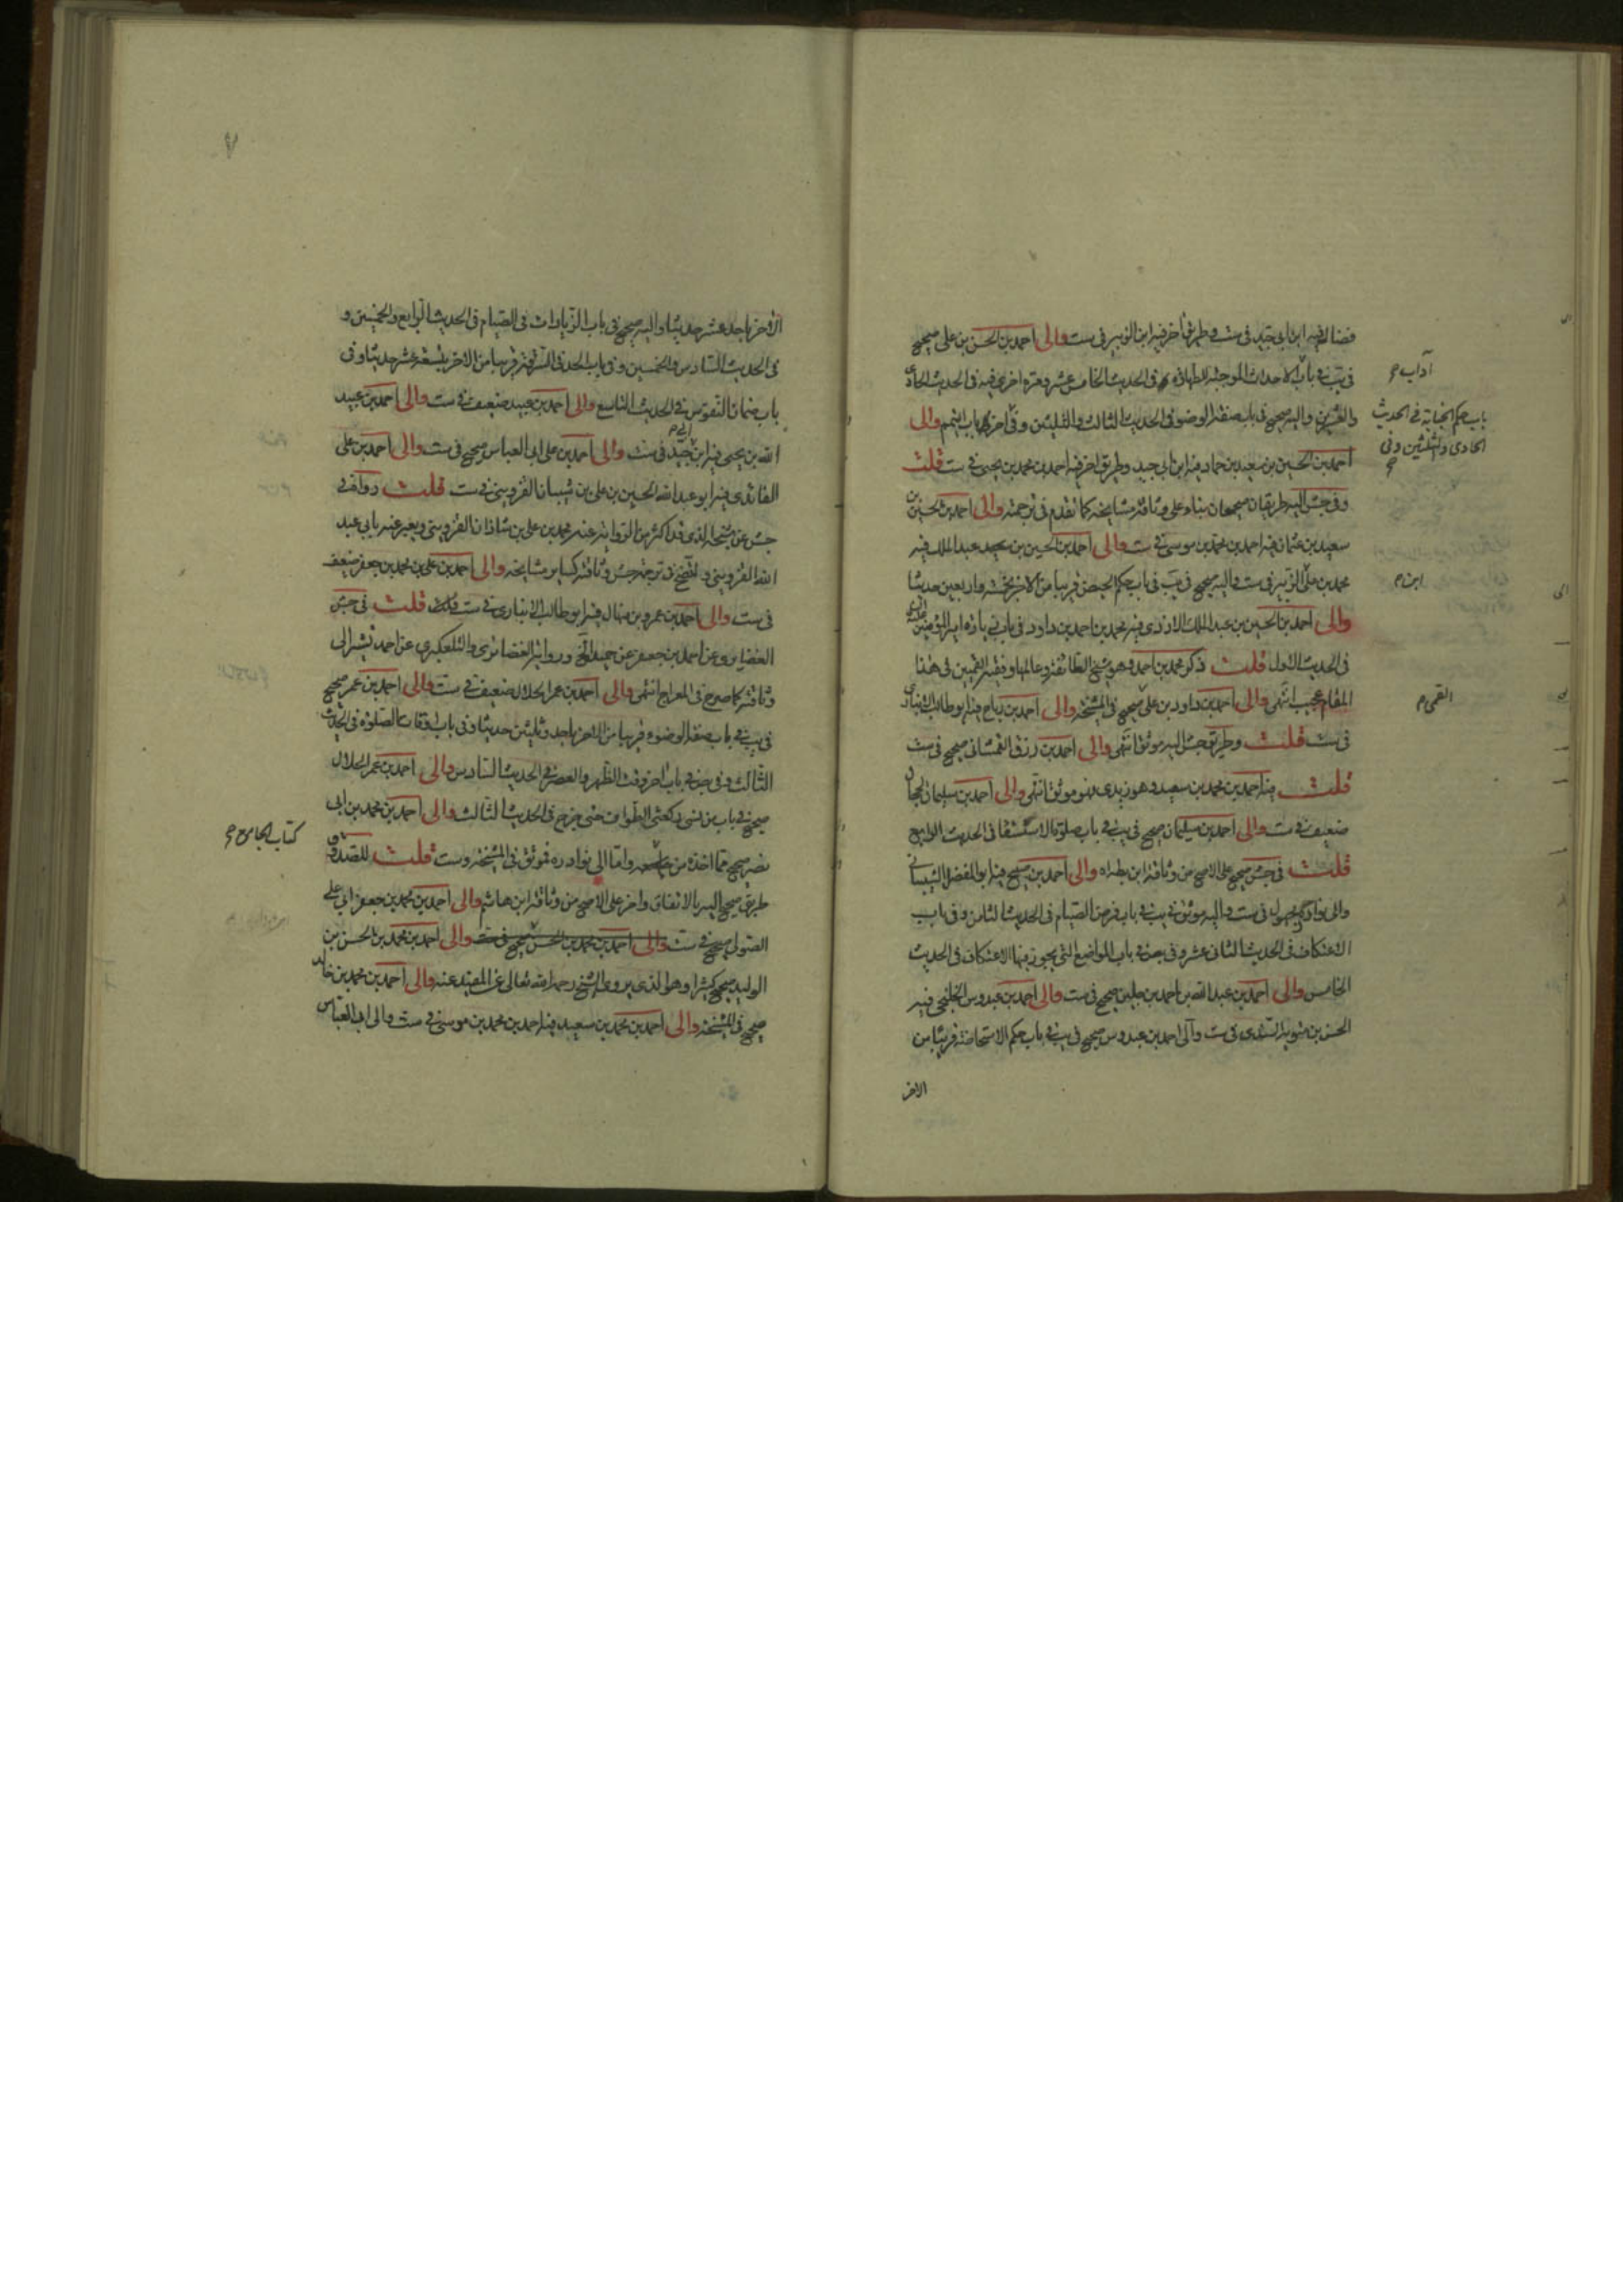 فضال فيه ابن ابي جيد في ست وطريق اخر فيه ابن الزبير في ست والى احمد بن الحسن بن علي صحيح
في يب في باب الاحداث الموجبة للطهارة في الحديث الخامس عشر ومرة اخرى فيه في الحديث الحادي
والعشرين واليه صحيح في باب صفة الوضوء في الحديث الثالث والثلثين وفي اخر باب التيمم والى
احمد بن الحسين بن سعيد بن حماد فيه ابن ابي جيد وطريق اخر فيه احمد بن محمد بن يحيى في ست قلت
وفي جش اليه طريقان صحيحان بناء على وثاقة مشايخه كما تقدم في ترجمته والى احمد بن الحسين بن
سعيد بن عثمان فيه احمد بن محمد بن موسى في ست والى احمد بن الحسين بن عبد الملك فيه
محمد بن علي الزبير في ست واليه صحيح في يب في باب حكم الحيض قريبا من الاخر بخمسة واربعين حديثا
والى احمد بن الحسين بن عبد الملك الازدي فيه محمد بن احمد بن داود في باب زيارة امير المؤمنين
في الحديث الاول قلت ذكر محمد بن احمد وهو شيخ الطائفة وعالمها وفقيه القميين في هذا
المقام عجيب انتهى والى احمد بن داود بن علي صحيح في المشيخة والى احمد بن رباح فيه ابو طالب الانباري
في ست قلت وطريق جش اليه موثق انتهى والى احمد بن رزق الغمشاني صحيح في ست
قلت فيه احمد بن محمد بن سعيد وهو زيدي فهو موثق انتهى والى احمد بن سليمان الحجال
ضعيف في ست والى احمد بن سليمان صحيح في يب في باب صلوة الاستسقا في الحديث الرابع
قلت في جش صحيح على الاصح من وثاقة ابن بطه اه والى احمد بن صبيح فيه ابو المفضل الشيباني
والى نوادره مجهول في ست واليه موثق في يب في باب فرض الصيام في الحديث الثامن وفي باب
الاعتكاف في الحديث الثاني عشر وفي بص في باب المواضع التي يجوز فيها الاعتكاف في الحديث
الخامس والى احمد بن عبد الله بن احمد بن جلين صحيح في ست والى احمد بن عبدوس الخلنجي فيه
الحسن بن متويه السندي في ست والى احمد بن عبدوس صحيح في يب في باب حكم الاستحاضة قريبا من
الاخر
آداب
باب حكم الجنابة في الحديث
الحادي والثلثين وفي
ابن
القمي
٧
الاخر باحد عشر حديثا واليه صحيح في باب الزيادات في الصيام في الحديث الرابع والخمسين و
في الحديث السادس والخمسين وفي باب الحد في السرقة قريبا من الاخر بتسعة عشر حديثا وفي
باب ضمان النفوس في الحديث التاسع والى احمد بن عبيد ضعيف في ست والى احمد بن عبيد
الله بن يحيى فيه ابن ابي جيد في ست والى احمد بن علي ابي العباس صحيح في ست والى احمد بن علي
الفائدي فيه ابو عبد الله الحسين بن علي بن شيبان القزويني في ست قلت رواه في
جش عن شيخه الذي قد اكثر من الرواية عنه محمد بن علي بن شاذان القزويني ويعبر عنه بابي عبد
الله القزويني في ترجمة جش وثاقته كساير مشايخه والى احمد بن علي بن محمد بن جعفر ضعيف
في ست والى احمد بن عمرو بن منهال فيه ابو طالب الانباري في ست قلت في جش
الغضايري عن احمد بن جعفر عن حميد الخ ورواية الغضائري والتلعكبري عن احمد تشير الى
وثاقته كما صرح في المعراج انتهى والى احمد بن عمر الحلال ضعيف في ست والى احمد بن عمر صحيح
في يب في باب صفة الوضوء قريبا من الاخر باحد وثلثين حديثا وفي باب اوقات الصلوة في الحديث
الثالث وفي بص في باب اخر وقت الظهر والعصر في الحديث السادس والى احمد بن عمر الحلال
صحيح في باب من نسي ركعتي الطواف حتى خرج في الحديث الثالث والى احمد بن محمد بن ابي
نصر صحيح مما اخذه من جامعه واما الى نوادره فموثق في المشيخة وست قلت للصدوق
طريق صحيح اليه بالاتفاق واخر على الاصح من وثاقة ابن هاشم والى احمد بن محمد بن جعفر ابي علي
الصولي صحيح في ست والى احمد بن محمد بن الحسن صحيح في ست والى احمد بن محمد بن الحسن بن
الوليد صحيح كثيرا وهو الذي يروي الشيخ رحمه الله تعالى عن المفيد عنه والى احمد بن محمد بن خالد
صحيح في المشيخة والى احمد بن محمد بن سعيد فيه احمد بن محمد بن موسى في ست والى ابي العباس
كتاب الجامع